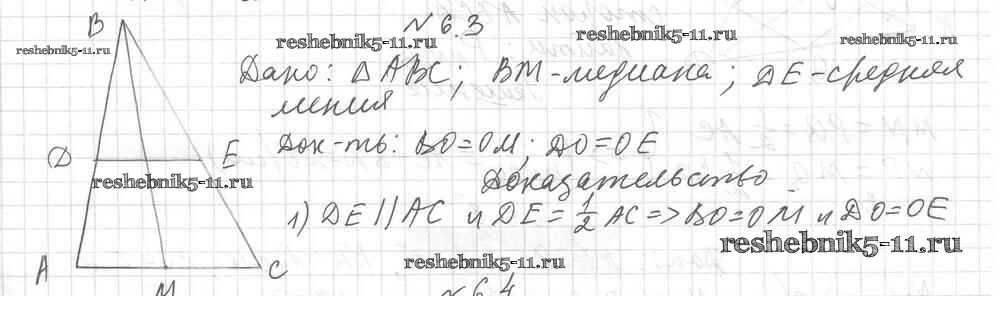 № 6.3
B
reshebnik5-11.ru
reshebnik5-11.ru
reshebnik5-11.ru
reshebnik5-11.ru
Дано: △ ABC; BM-медиана; DE-средняя
линия
Док-ть: BO=OM; DO=OE
D E
reshebnik5-11.ru
Доказательство
1) DE || AC и DE = 1/2 AC => BO=OM и DO=OE
reshebnik5-11.ru
A C
reshebnik5-11.ru
M
№ 6.4